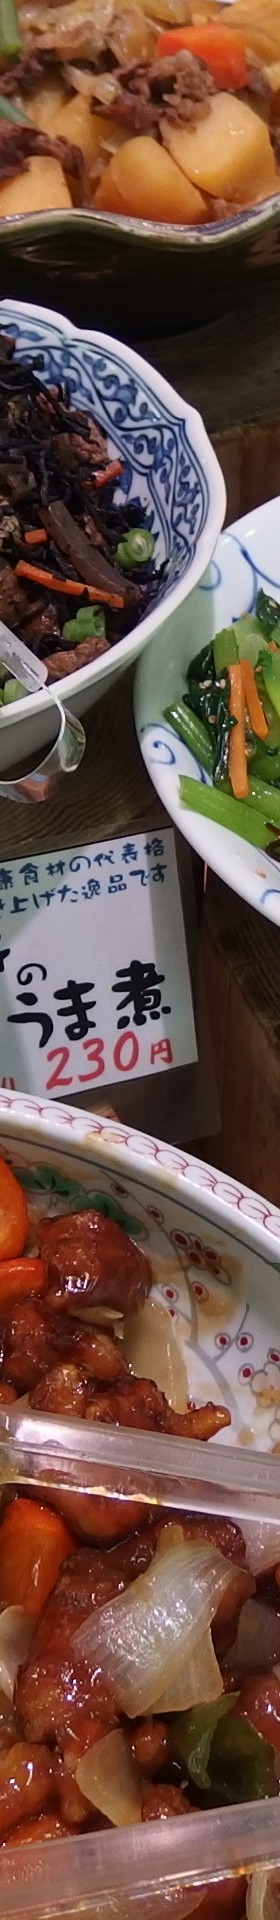 康食材の代表格
上げた逸品です
の
うま煮
230円